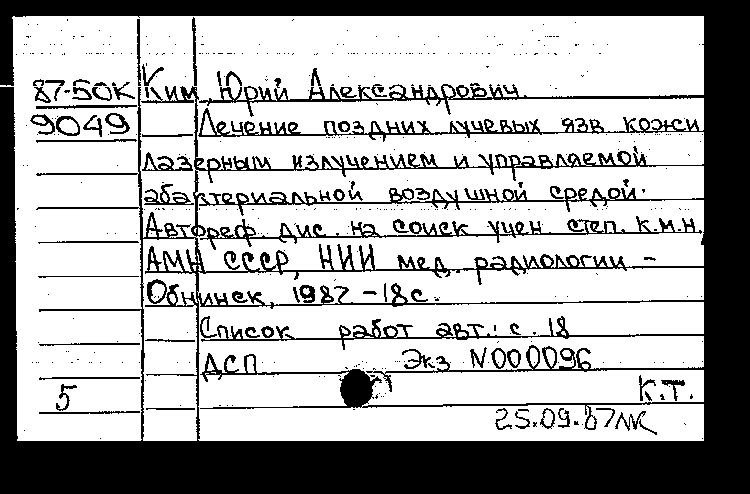 87-50К Ким, Юрий Александрович.
9049 Лечение поздних лучевых язв кожи
лазерным излучением и управляемой
абактериальной воздушной средой.
Автореф. дис. на соиск учен степ. к.м.н.
АМН СССР, НИИ мед. радиологии -
Обнинск, 1987 - 18 с.
Список работ авт.: с. 18
ДСП Экз N000096
5 К.Т.
25.09.87